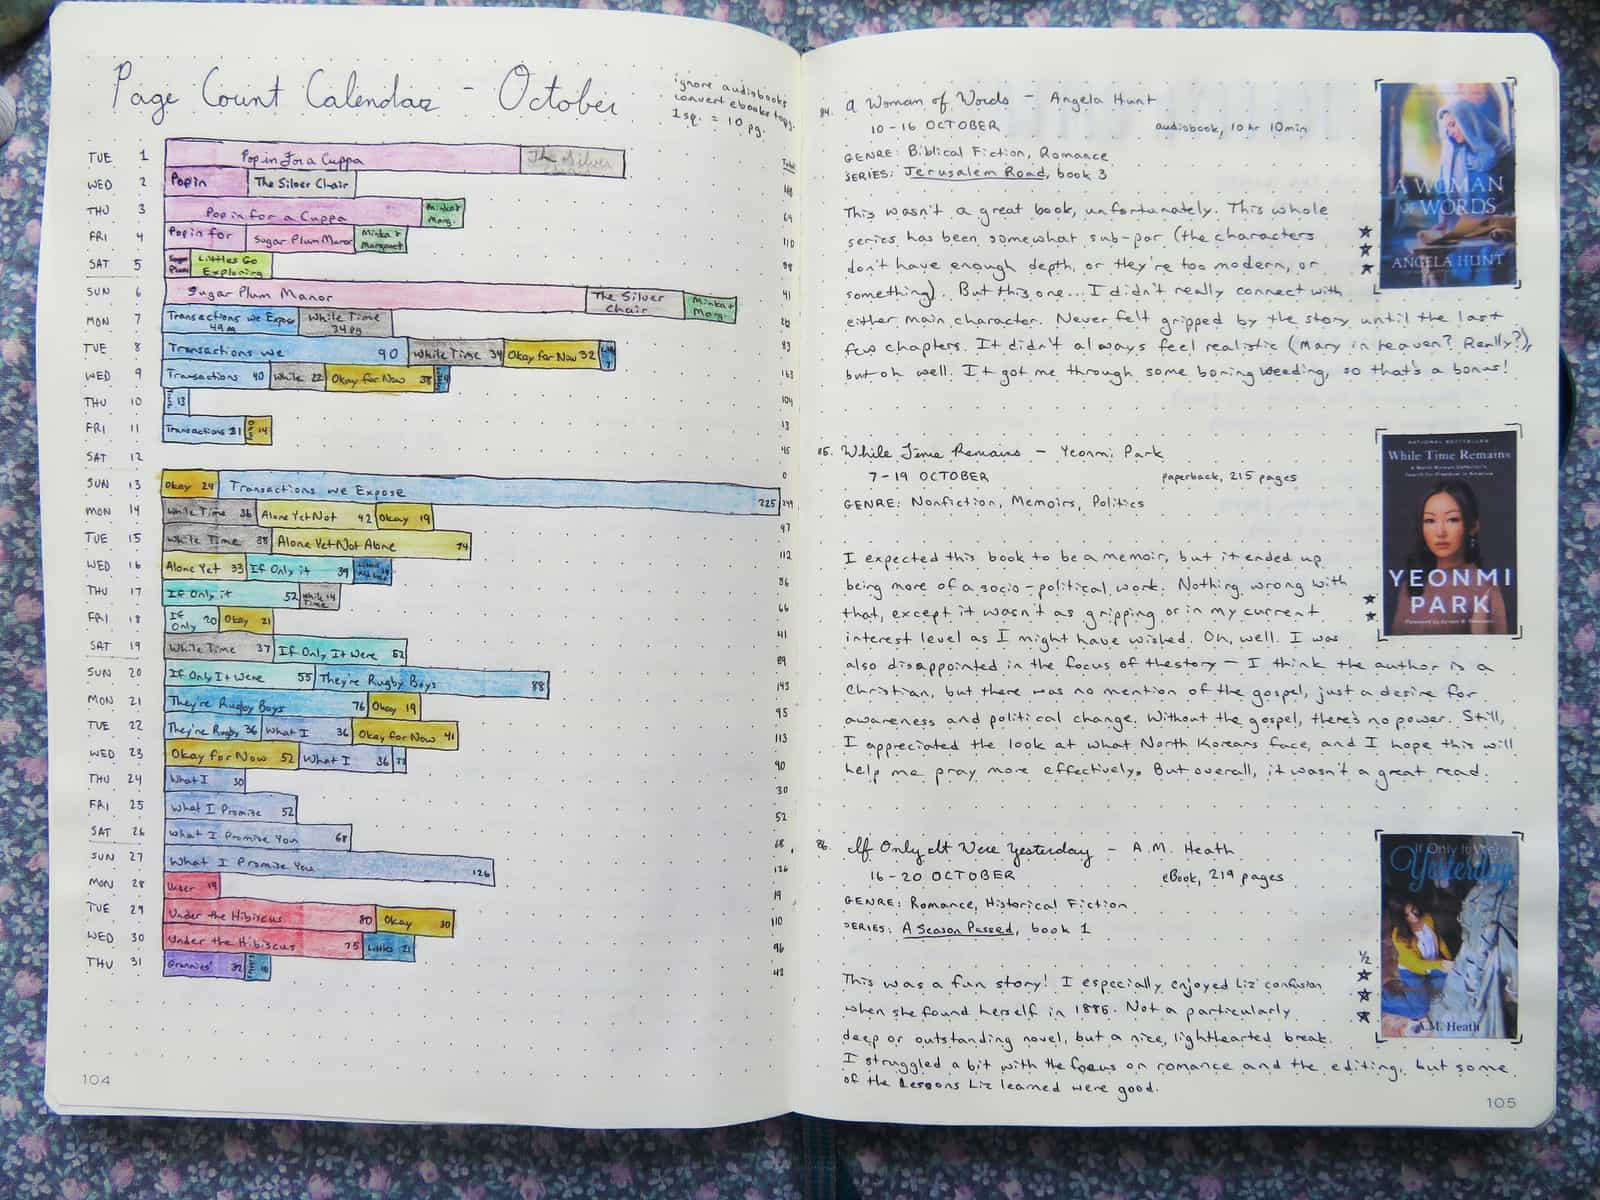 Page Count Calendar - October
ignore audiobooks
convert ebooks to pg.
1 sq. = 10 pg.
Total
TUE 1 Pop in for a Cuppa The Silver
WED 2 Pop in The Silver Chair
THU 3 Pop in for a Cuppa Minka + Marg. 64
FRI 4 Pop in for Sugar Plum Manor Minka + Margaret 110
SAT 5 Sugar Plum Littles Go Exploring
SUN 6 Sugar Plum Manor The Silver Chair Minka + Marg. 41
MON 7 Transactions we Expose 49 pg While Time 34 pg
TUE 8 Transactions we 90 While Time 34 Okay for Now 32 7 93
WED 9 Transactions 40 While 22 Okay for Now 38 4 163
THU 10 13 104
FRI 11 Transactions 31 14 13
SAT 12 45
SUN 13 Okay 24 Transactions We Expose 225 0
249
MON 14 While Time 36 Alone Yet Not 42 Okay 19
TUE 15 While Time 38 Alone Yet Not Alone 74 97
WED 16 Alone Yet 33 If Only it 39 112
THU 17 If Only it 52 While Time 14 86
FRI 18 If Only 20 Okay 21 66
SAT 19 While Time 37 If Only It Were 52 41
SUN 20 If Only It Were 55 They're Rugby Boys 88 89
MON 21 They're Rugby Boys 76 Okay 19 143
TUE 22 They're Rugby 36 What I 36 Okay for Now 41 95
WED 23 Okay for Now 52 What I 36 113
THU 24 What I 30 90
FRI 25 What I Promise 52 30
SAT 26 What I Promise You 68 52
SUN 27 What I Promise You 126 68
MON 28 Under 19 126
TUE 29 Under the Hibiscus 80 Okay 30 19
WED 30 Under the Hibiscus 75 Littles 21 110
THU 31 Grannies' 32 96
48
104
84. A Woman of Words - Angela Hunt
10-16 OCTOBER audiobook, 10 hr 10min
GENRE: Biblical Fiction, Romance
SERIES: Jerusalem Road, book 3
This wasn't a great book, unfortunately. This whole
series has been somewhat sub-par (the characters
don't have enough depth, or they're too modern, or
something). But this one... I didn't really connect with
either main character. Never felt gripped by the story until the last
few chapters. It didn't always feel realistic (Mary in heaven? Really?),
but oh well. It got me through some boring weeding, so that's a bonus!
A WOMAN
of WORDS
ANGELA HUNT
85. While Time Remains - Yeonmi Park
7-19 OCTOBER paperback, 215 pages
GENRE: Nonfiction, Memoirs, Politics
I expected this book to be a memoir, but it ended up
being more of a socio-political work. Nothing wrong with
that, except it wasn't as gripping or in my current
interest level as I might have wished. Oh, well. I was
also disappointed in the focus of the story - I think the author is a
Christian, but there was no mention of the gospel, just a desire for
awareness and political change. Without the gospel, there's no power. Still,
I appreciated the look at what North Koreans face, and I hope this will
help me pray more effectively. But overall, it wasn't a great read.
NATIONAL BESTSELLER
While Time Remains
A North Korean Defector's
Search for Freedom in America
YEONMI
PARK
86. If Only It Were Yesterday - A.M. Heath
16-20 OCTOBER eBook, 219 pages
GENRE: Romance, Historical Fiction
SERIES: A Season Passed, book 1
1/2
This was a fun story! I especially enjoyed Liz' confusion
when she found herself in 1885. Not a particularly
deep or outstanding novel, but a nice, lighthearted break.
I struggled a bit with the focus on romance and the editing, but some
of the lessons Liz learned were good.
If Only It Were
Yesterday
A.M. Heath
105